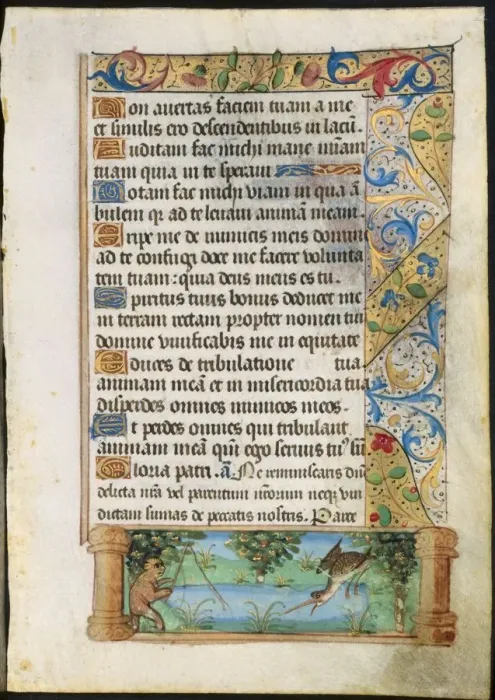 Non auertas faciem tuam a me
et similis ero descendentibus in lacū.
Auditam fac michi mane miām
tuam quia in te speraui
Notam fac michi viam in qua ā
bulem qr ad te leuaui animā meam.
Eripe me de inimicis meis domine
ad te confugi doce me facere volunta
tem tuam : quia deus meus es tu.
Spiritus tuus bonus deducet me
in terram rectam propter nomen tuū
domine viuificabis me in equitate
Educes de tribulatione tua
animam meā et in misericordia tua
disperdes omnes inimicos meos.
Et perdes omnes qui tribulant
animam meā qm̄ ego seruus tu⁹ sū
Gloria patri . ā. Ne reminiscaris dn̄e
delicta nr̄a vel parentum nr̄orum neqꝫ vin
dictam sumas de peccatis nostris. Pater